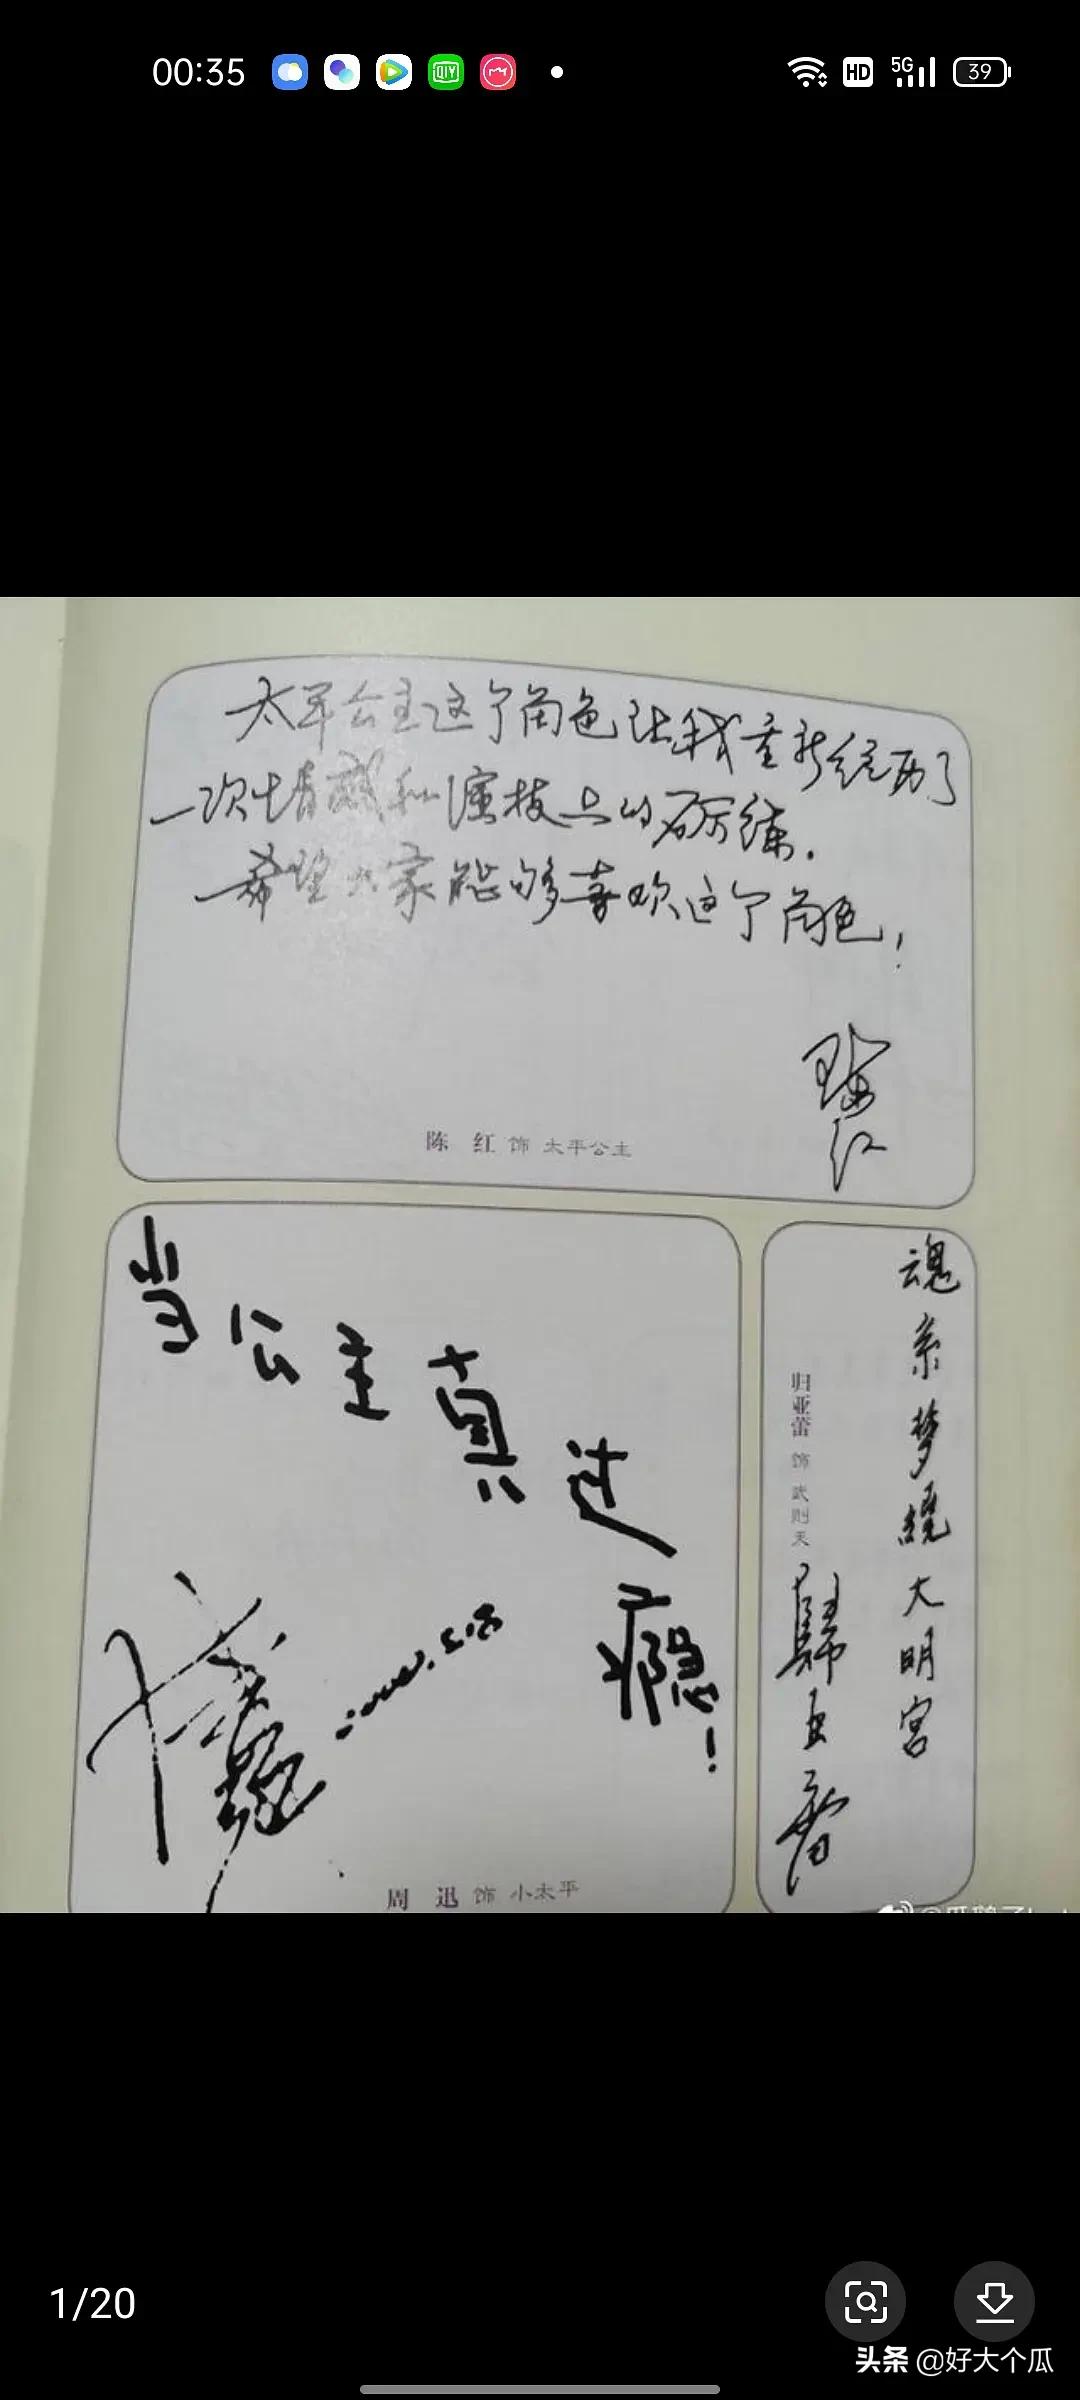 00:35
HD
5G
39
太平公主这个角色让我重新经历了
一次情感和演技上的砺练.
希望大家能够喜欢这个角色!
陈红
陈 红 饰 太平公主
当公主真过瘾!
周 迅 饰 小太平
魂系梦绕大明宫
归亚蕾 饰 武则天
歸亚蕾
1/20
头条 @好大个瓜